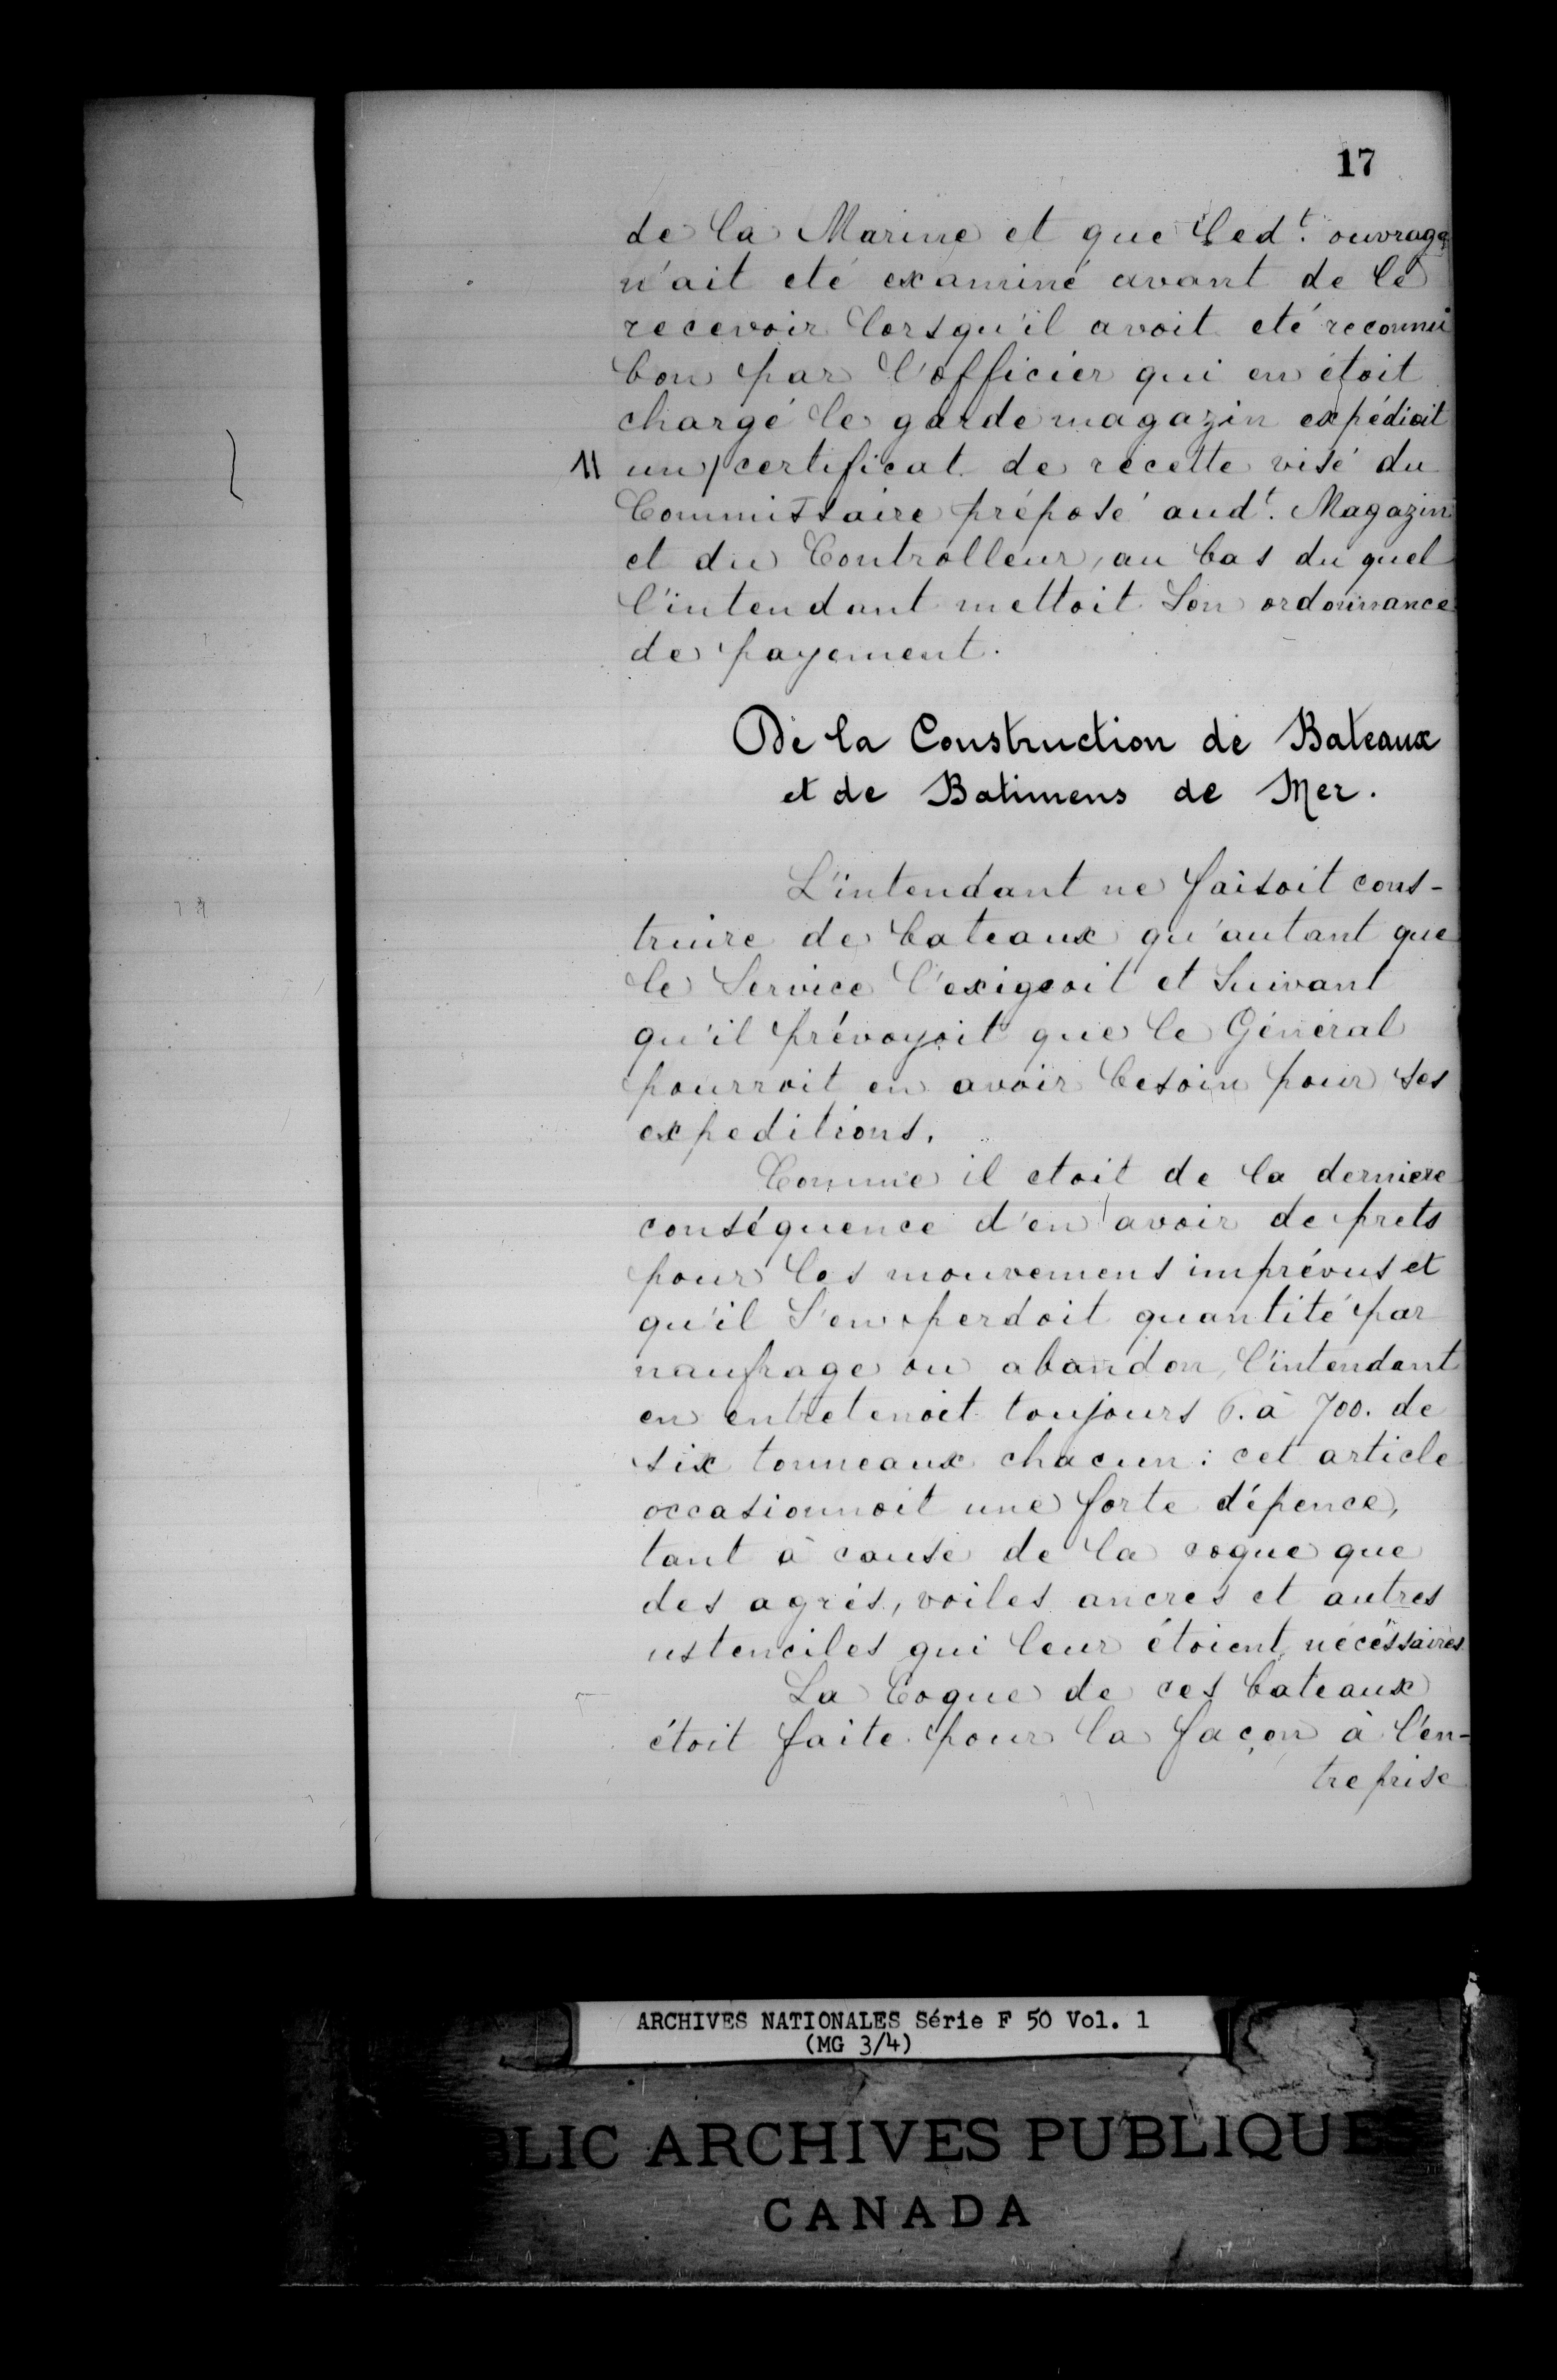 17
de la Marine et que led.t ouvrage
n'ait eté examiné avant de le
recevoir lorsqu'il avoit eté reconnu
bon par l'officier qui en étoit
chargé le garde magazin expédioit
11 un/certificat de recette visé du
Commissaire préposé aud.t Magazin
et du Controlleur, au bas du quel
l'intendant mettoit Son ordonnance
de payement.
De la Construction de Bateaux
et de Batimens de Mer.
L'intendant ne faisoit cons-
truire de bateaux qu'autant que
le Service l'exigeoit et Suivant
qu'il prévoyoit que le Général
pourroit en avoir besoin pour ses
expeditions.
Comme il etoit de la derniere
conséquence d'en avoir de prets
pour les mouvemens imprévus et
qu'il S'en perdoit quantité par
naufrage ou abandon, l'intendant
en entretenoit toujours 6. à 700. de
six tonneaux chacun : cet article
occasionnoit une forte dépence,
tant à cause de la coque que
des agrès, voiles ancres et autres
ustenciles qui leur étoient nécessaires
La Coque de ces bateaux
étoit faite pour la façon à l'en-
treprise
ARCHIVES NATIONALES Série F 50 Vol. 1
(MG 3/4)
BLIC ARCHIVES PUBLIQUES
CANADA